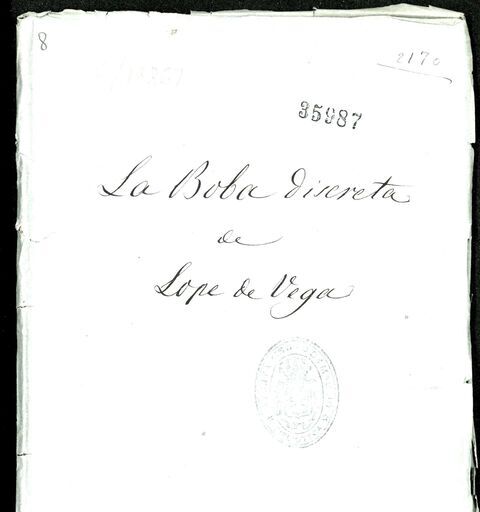 8
2170
35987
La Boba discreta
de
Lope de Vega